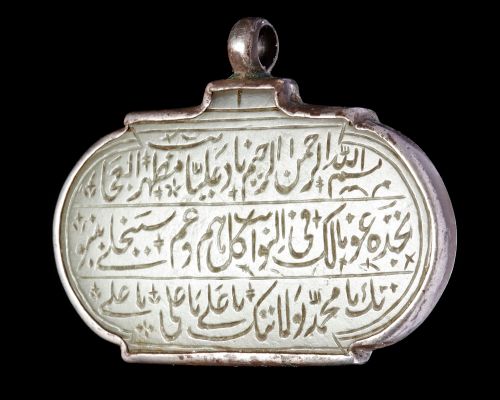 بسم الله الرحمن الرحيم ناد عليا مظهر العجايب
تجده عونا لك في النوائب كل هم وغم سينجلي بنبو
تك يا محمد بولايتك يا علي يا علي يا علي